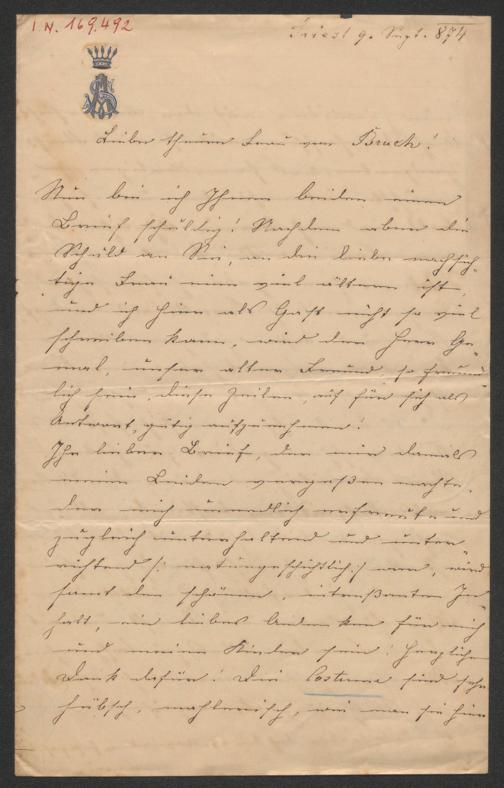 I.N. 169.492
Triest 9. Sept. 874
Liebe theure Frau von Bruck!
Nun bin ich Ihnen beiden einen
Brief schuldig! Nachdem aber die
Schuld an Sie, an die liebe nachsich-
tige Frau eine viel ältere ist,
und ich hier als Gast nicht so viel
schreiben kann, wird der Herr Ge-
mal, unser alter Freund, so freund-
lich sein, diese Zeilen, auch für sich als
Antwort, gütig aufzunehmen!
Ihr lieber Brief, der mir damals
meine Leiden vergeßen machte,
der mich unendlich erfreute und
zugleich unterhaltend und unter-
richtend /: naturgeschichtlich :/ war, wird
samt dem schönen, intereßanten In-
halt, ein liebes Andenken für mich
und meine Kinder sein! Herzlichen
Dank dafür! Die Costume sind sehr
hübsch, mahlerisch, wie man sie hier